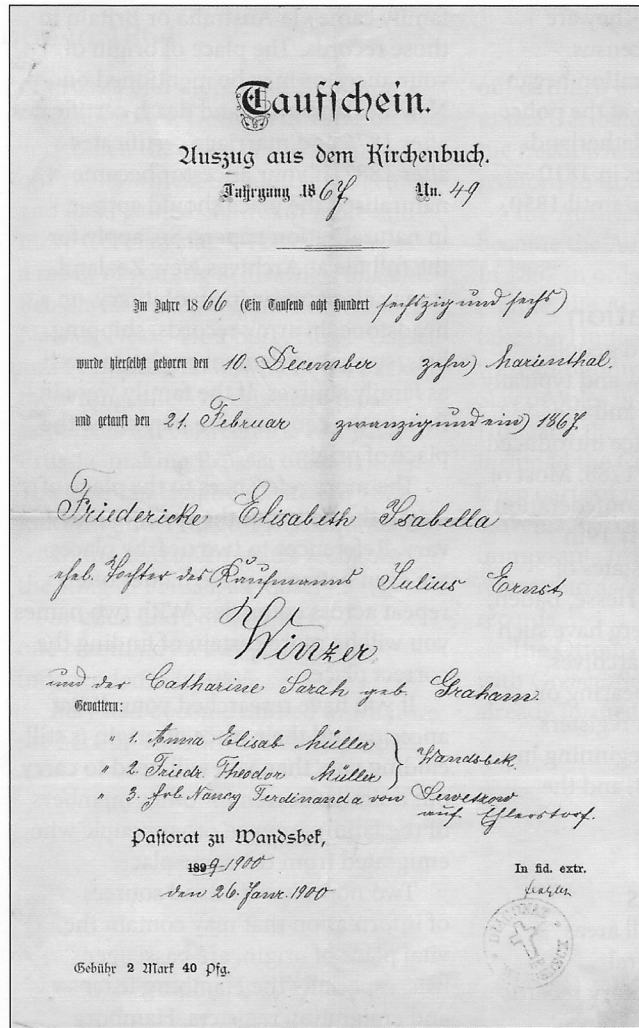 Taufschein.
Auszug aus dem Kirchenbuch.
Jahrgang 1867 Nr. 49
Im Jahre 1866 (Ein Tausend acht Hundert sechszig und sechs)
wurde hierselbst geboren den 10. December zehn) Marienthal.
und getauft den 21. Februar zwanzigundein) 1867.
Friedericke Elisabeth Isabella
ehel. Tochter des Kaufmanns Julius Ernst
Winzer
und der Catharine Sarah geb. Graham.
Gevattern:
" 1. Anna Elisab Müller
" 2. Friedr. Theodor Müller } Wandsbek.
" 3. Frl. Nancy Ferdinanda von
auf Ehlerstorf.
Pastorat zu Wandsbek,
1899-1900
den 26. Janr. 1900
In fid. extr.
DIACONAT
Gebühr 2 Mark 40 Pfg.